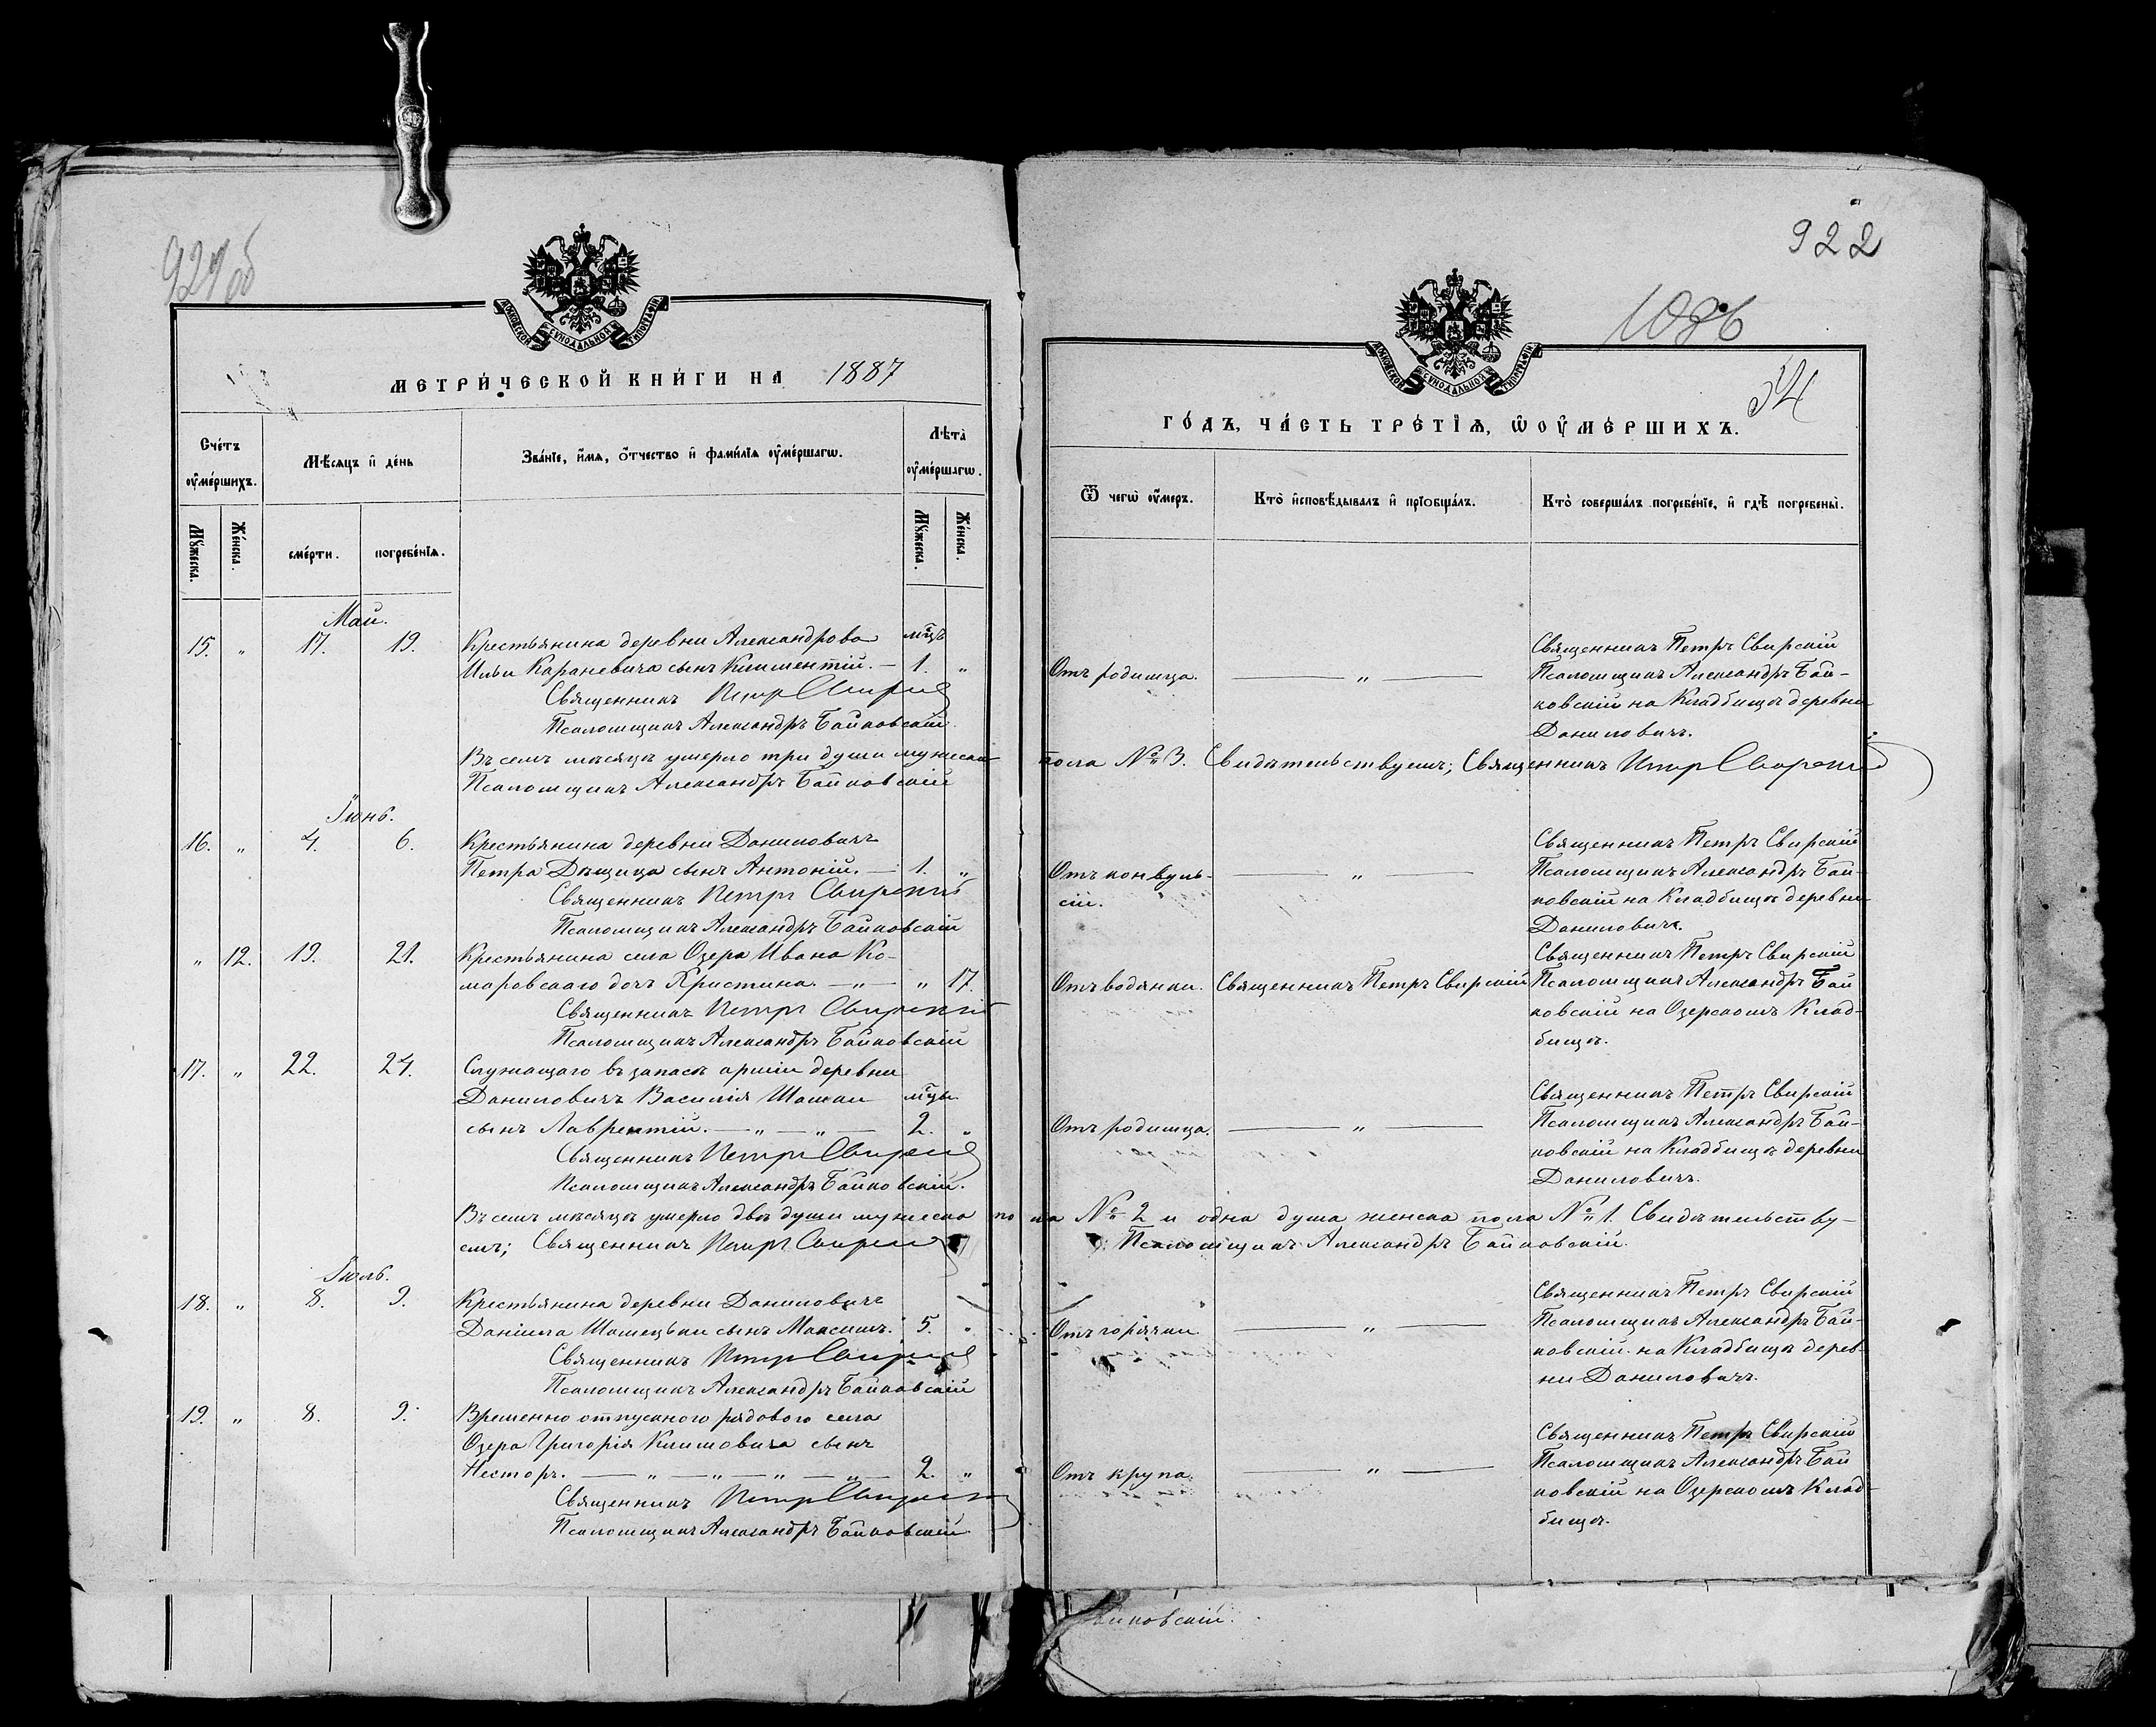 922
1086
34
МОСКОВСКОЙ СѴНОДАЛЬНОЙ ТИПОГРАФІИ
МОСКОВСКОЙ СѴНОДАЛЬНОЙ ТИПОГРАФІИ
МЕТРИ́ЧЕСКОЙ КНИ́ГИ НА 1887
ГО́ДЪ, ЧА́СТЬ ТРЕ́ТІѦ, Ѡ ОУ҆МЕ́РШИХЪ.
Сче́тъ оу҆ме́ршихъ.
Мѣ́сяцъ и҆ де́нь
Зва́нїе, и҆́мѧ, ѻ҆́тчество и҆ фами́лїѧ оу҆ме́ршагѡ.
Лѣ́та̀ оу҆ме́ршагѡ.
Ѿ чегѡ̀ оу҆́меръ.
Кто̀ и҆сповѣ́дывалъ и҆ прїѻбща́лъ.
Кто̀ соверша́лъ погребе́нїе, и҆ гдѣ̀ погребены̀.
Мꙋ́жеска. Же́нска. сме́рти. погребе́нїѧ. Мꙋ́жеска. Же́нска.
Май.
15. „ 17. 19. Крестьянина деревни Александрова мцъ
Ильи Караневича сынъ Климентій. — 1. „
Священникъ Петръ Свирскій
Псаломщикъ Александръ Байковскій.
Отъ родимца. — „ —
Священникъ Петръ Свирскій
Псаломщикъ Александръ Бай-
ковскій на Кладбищѣ деревни
Даниловичъ.
Въ семъ мѣсяцѣ умерло три души мужеска пола № 3. Свидѣтельствуемъ; Священникъ Петръ Свирскій
Псаломщикъ Александръ Байковскій
Іюнь.
16. „ 4. 6. Крестьянина деревни Даниловичъ
Петра Дѣщица сынъ Антоній. — 1. „
Священникъ Петръ Свирскій
Псаломщикъ Александръ Байковскій
Отъ конвуль-
сій. — „ —
Священникъ Петръ Свирскій
Псаломщикъ Александръ Бай-
ковскій на Кладбищѣ деревни
Даниловичъ.
„ 12. 19. 21. Крестьянина села Озера Ивана Ко-
маровскаго дочь Христина. — „ — „ 17.
Священникъ Петръ Свирскій
Псаломщикъ Александръ Байковскій
Отъ водянки. Священникъ Петръ Свирскій
Священникъ Петръ Свирскій
Псаломщикъ Александръ Бай
ковскій на Озерскомъ Клад-
бищѣ.
17. „ 22. 24. Служащаго въ запасѣ арміи деревни
Даниловичъ Василія Шашки мцы.
сынъ Лаврентій. — „ — „ — 2. „
Священникъ Петръ Свирскій
Псаломщикъ Александръ Байковскій.
Отъ родимца. — „ —
Священникъ Петръ Свирскій
Псаломщикъ Александръ Бай-
ковскій на Кладбищѣ деревни
Даниловичъ.
Въ семъ мѣсяцѣ умерло двѣ души мужеска пола № 2 и одна душа женска пола № 1. Свидѣтельству-
емъ; Священникъ Петръ Свирскій Псаломщикъ Александръ Байковскій.
Іюль.
18. „ 8. 9. Крестьянина деревни Даниловичъ
Даніила Шашецьки сынъ Максимъ. 5. „
Священникъ Петръ Свирскій
Псаломщикъ Александръ Байковскій
Отъ горячки — „ —
Священникъ Петръ Свирскій
Псаломщикъ Александръ Бай-
ковскій на Кладбищѣ дерев-
ни Даниловичъ.
19. „ 8. 9. Временно отпускного рядового села
Озера Григорія Климовича сынъ
Несторъ. — „ — „ — „ — „ — 2. „
Священникъ Петръ Свирскій
Псаломщикъ Александръ Байковскій
Отъ крупа. — „ —
Священникъ Петръ Свирскій
Псаломщикъ Александръ Бай
ковскій на Озерскомъ Клад-
бищѣ.
йковскій.